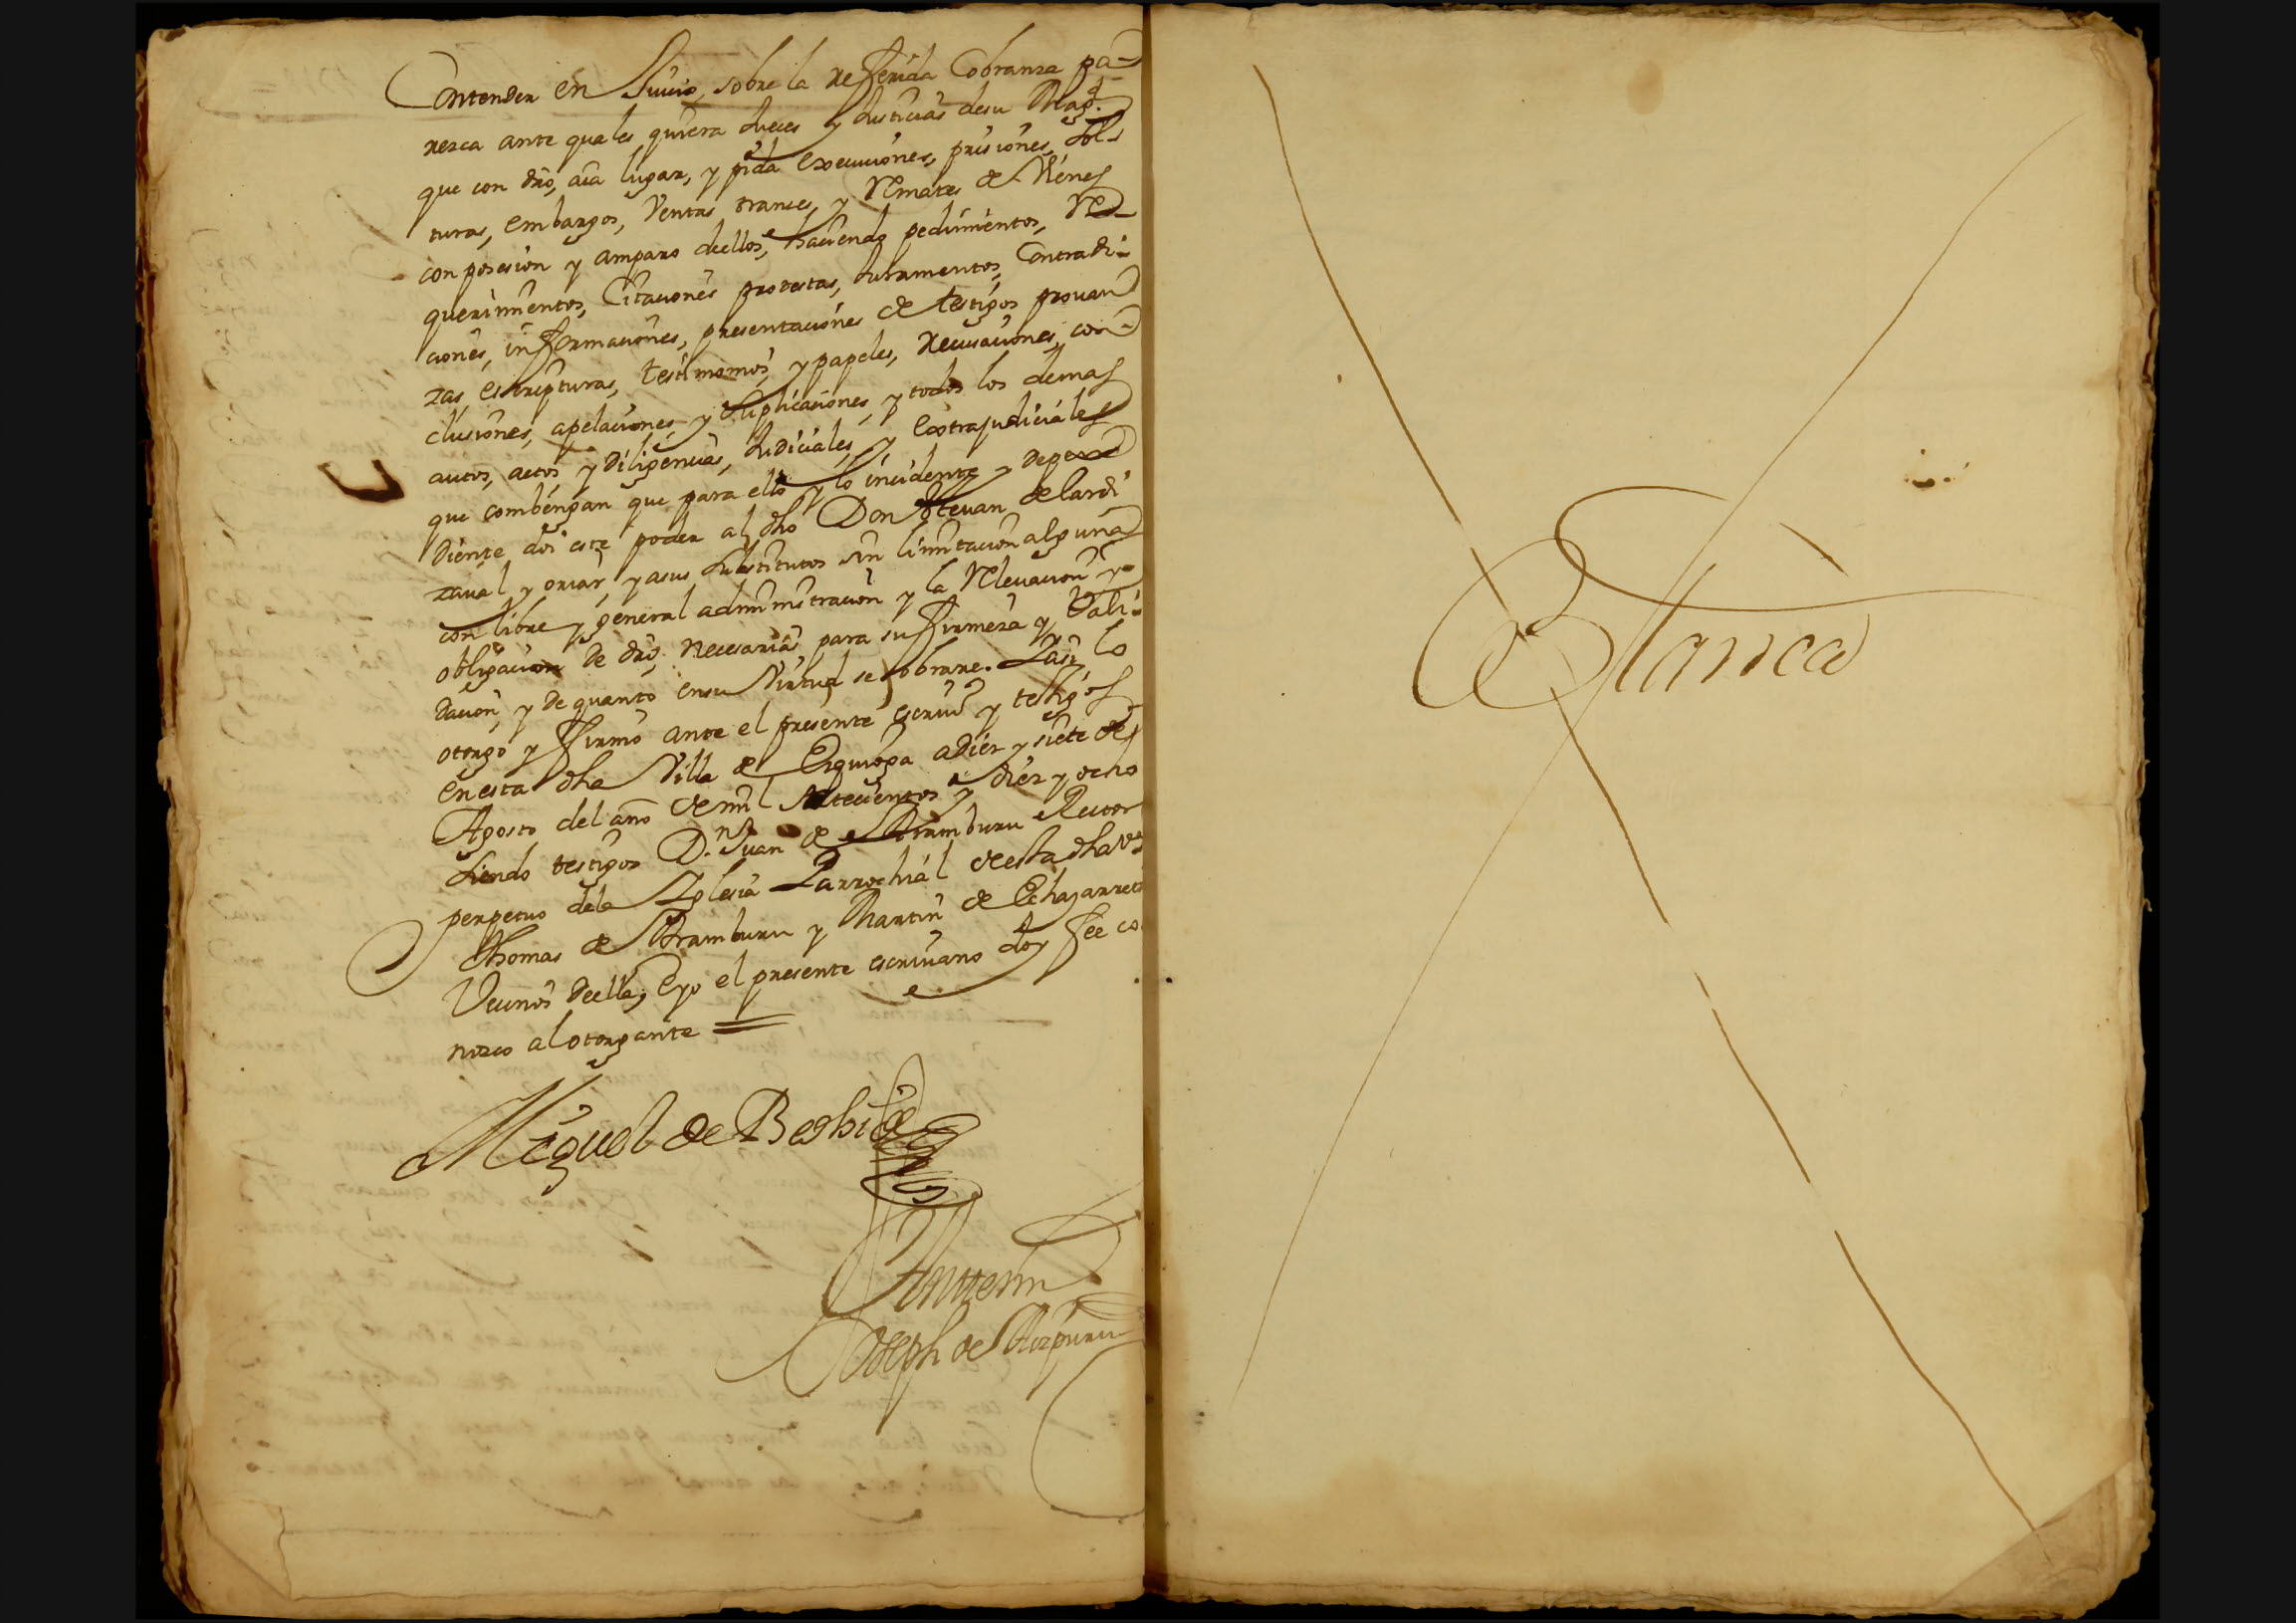 Contender en Juicio, sobre la refferida Cobranza pa-
rezca ante quales quiera Jueces y Justicias de su Magd.
que con dro, aia lugar, y pida execuciones, prisiones, sol-
turas, embargos, Ventas trances, y Remates de Vienes
con posesion y amparo dellos, haciendo pedimientos, Re-
querimientos, Citaciones protestas, Juramentos, Contradi-
ciones, informaciones, presentaciones de testigos provan
zas, escripturas, testimonios, y papeles, recusaciones, con-
clusiones, apelaciones, y suplicaciones, y todos los demas
autos, actos, y diligencias, Judiciales, y Extrajudiciales
que combengan que para ello y lo incidente y depen
diente doi este poder al dho Don Estevan de lardi
zaval y oriar, y asus Substitutos sin limitacion alguna
con libre y general administracion y la Relevacion y
obligacion de dro, necesarias, para su firmeza y Vali-
dacion, y de quanto en su Virtud se obrare. Y asi lo
otorgo y firmo ante el presente escrivo y testigos
en esta dha Villa de Ezquioga a diez y siete de
Agosto del año de mil setecientos y diez y ocho
siendo testigos Dn. Juan de Aramburu Rector
perpetuo dela Iglesia Parrochial de esta dha va
Thomas de Aramburu y Martin de Echazarreta
Vecinos deella, e yo el presente escrivano doy fee co
nozco al otorgante =
Miguel de Beghi
Antemi
Joseph de Aizpuru
Blanca